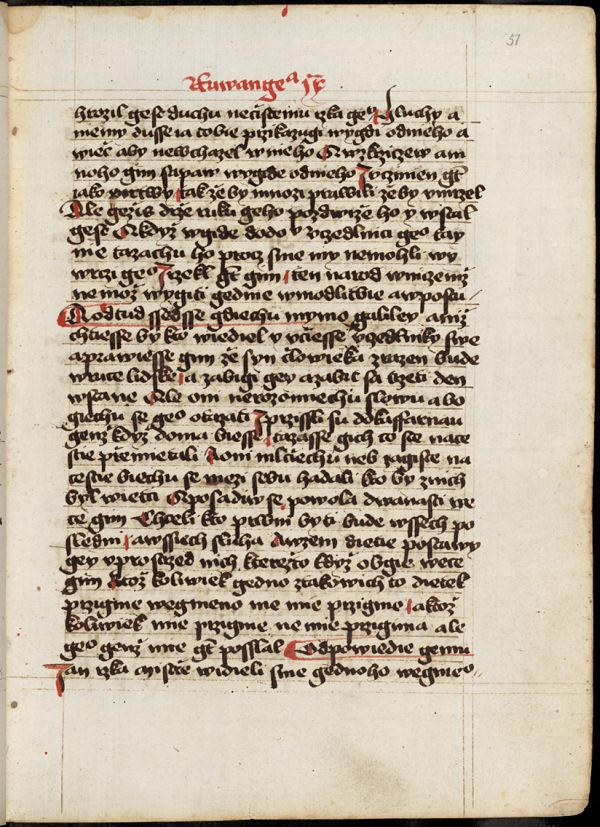 51
Euwangea ix
hrozil gest duchu necistemu rzka geo hluchy a
niemy dusse ia tobie przikazugi wygdi odnieho a
wiec aby newchazel wnieho A wzkrziczew a m
noho gim sapaw wygide odnieho I vczinien gt
iako mrtwy tak zie by mnozi prawili zie by vmrzel
Ale geziss drze ruku geho pozdwize ho y wstal
gest A kdyz wgide dodo v vczedlnici geo tay
nie tazachu ho procz sme my nemohli wy
wrzi geo I rzekl gt gim ten narod wniczemz
nemoz wygiti gedine wmodlitbie a wpostu
A odtud ssedsse gdiechu mymo galiley aniz
chtiesse by kto wiediel y vciesse vczedlniky swe
a prawiesse gim ze syn clowieka zrazen bude
wruce lidske a zabigi gey a zabit sa trzeti den
wstane Ale oni nerozomiechu slowu a bo
giechu se geo otazati I przissli su dokaffarnau
genz kdyz doma biesse tazasse gich co ste nace
stie przemietali A oni mlciechu neb zagiste na
cestie biechu se mezi sebu hadali kto by znich
byl wietci A posadiw se powola dwanasti we
ce gim Chceli kto prwni byti bude wssech po
sledni a wssiech sluha A wzem dietie postawy
gey vprostrzed nich kterezto kdyz obgie wece
gim Ktoz koliwiek gedno ztakowich to dietek
przigme wegmeno me mie przigme a ktoz
koliwiek mie przigme ne mie przigima ale
geo genz mie gt posslal Odpowiedie gemu
Jan rzka mistrze widieli sme gednoho wegmeo